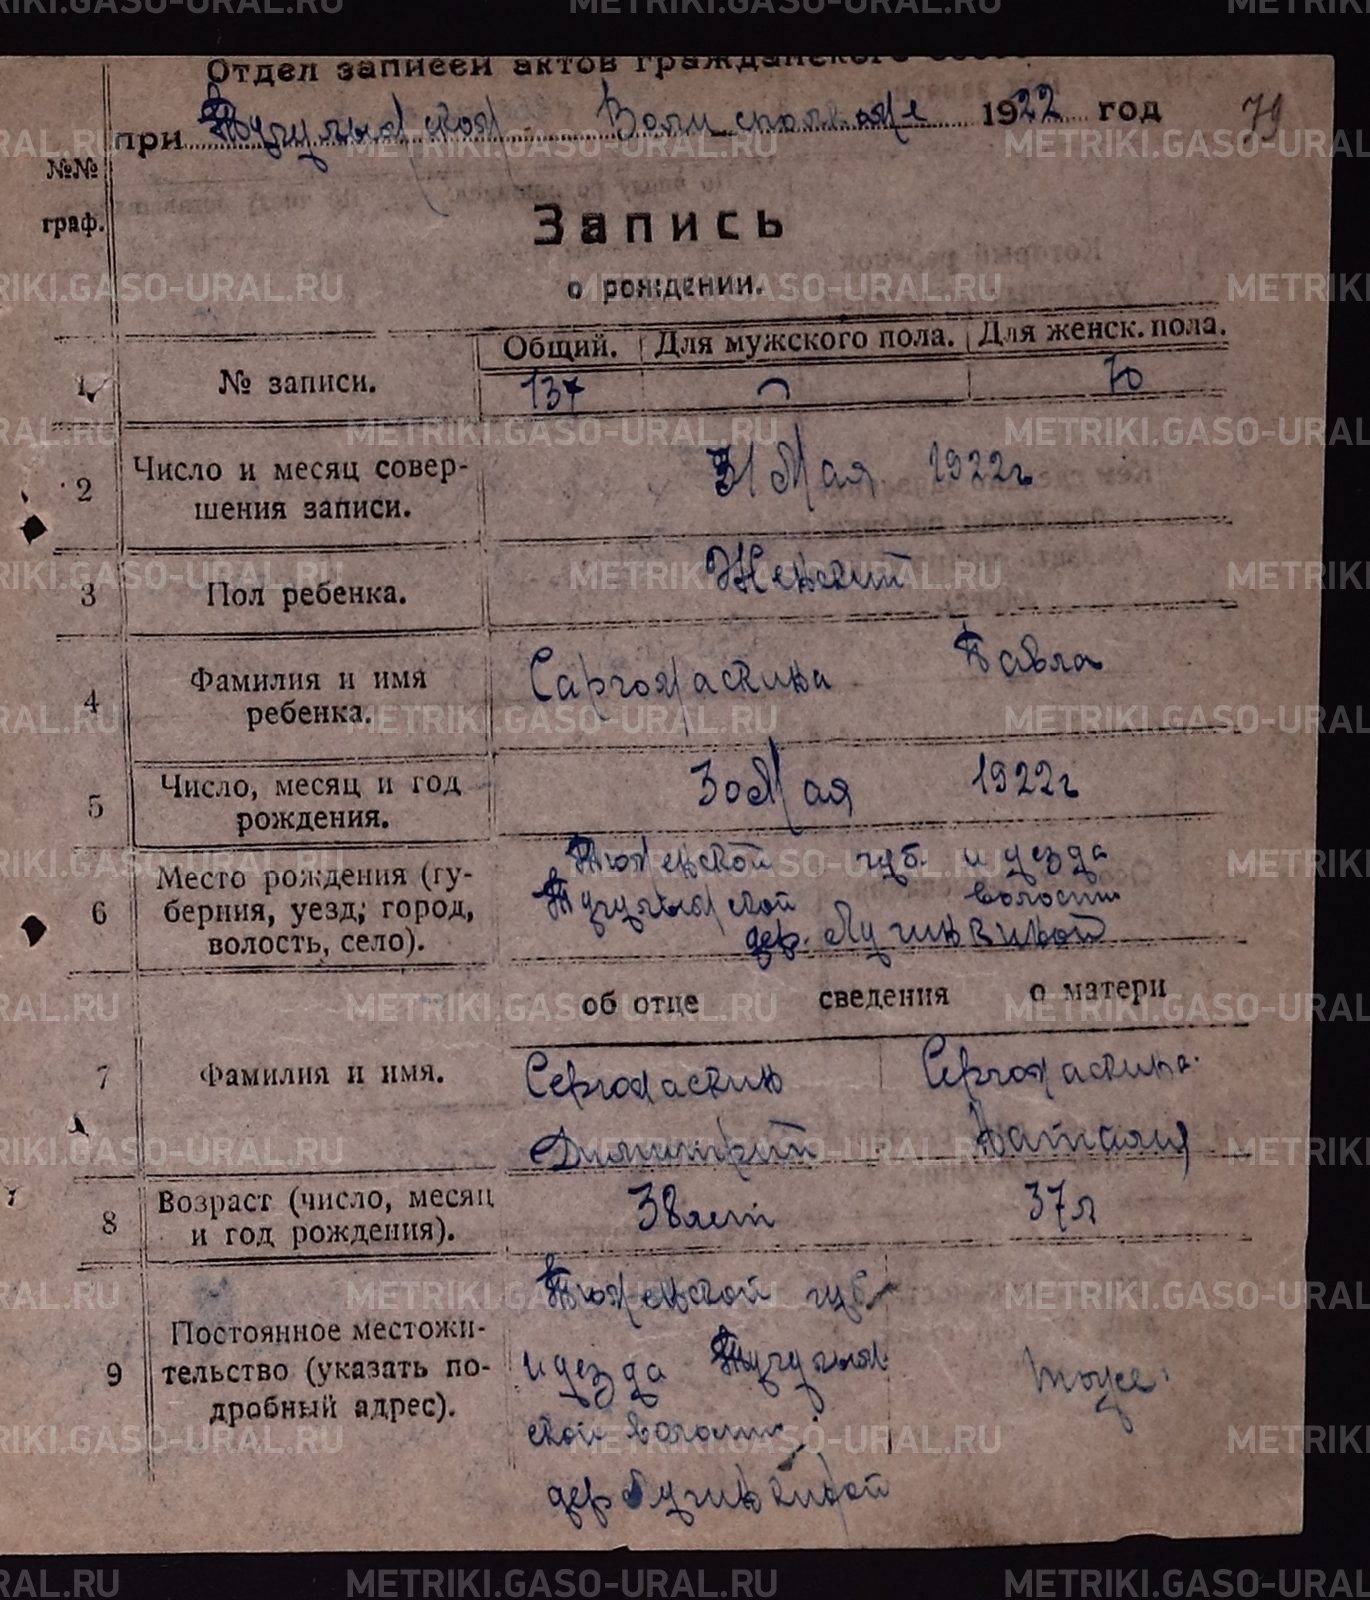 Отдел записей актов гражданского
при Тугулымской Волисполкоме 1922 год
79
№№
граф.
Запись
о рождении.
Общий. Для мужского пола. Для женск. пола.
1 № записи. 137 70
2 Число и месяц совер-
шения записи.
31 Мая 1922г
3 Пол ребенка. Женский
4 Фамилия и имя
ребенка.
Саргомаскина Павла
5 Число, месяц и год
рождения.
30 Мая 1922г
6 Место рождения (гу-
берния, уезд; город,
волость, село).
Тюменской губ. и уезда
Тугулымской волости
дер.
об отце сведения о матери
7 Фамилия и имя. Сергомаскин Сергомаскина
Димитрий Наталия
8 Возраст (число, месяц
и год рождения).
38 лет 37 л
9 Постоянное местожи-
тельство (указать по-
дробный адрес).
Тюменской губ
и уезда Тугулым
ской волости
дер
тоже.
METRIKI.GASO-URAL.RU